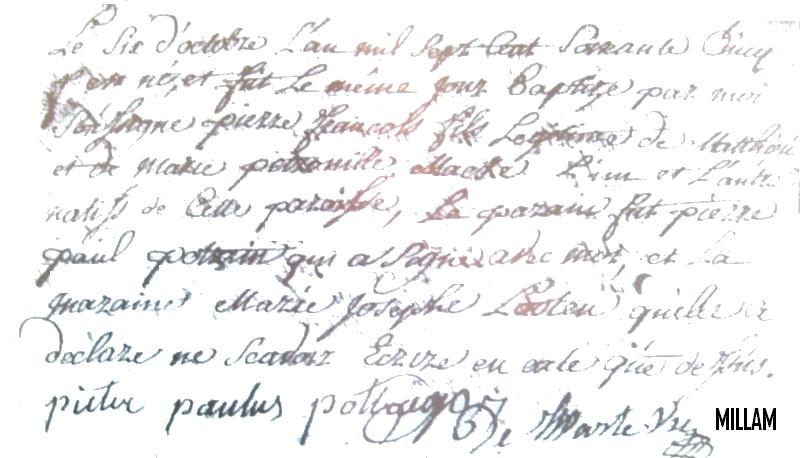 Le Six d'octobre L'an mil Sept Cent Soixante Cinq
est né, et fut Le même Jour Baptize par moi
Soussigne pierre francois fils Legitime de Matthieu
et de marie petronille Macke L'un et L'autre
natifs de Cette paroisse, Le parain fut pierre
paul qui a Signé avec moi et La
maraine Marie Josephe quelle a
declare ne Scavoir Ecrire en date que desus.
pieter paulus
MILLAM